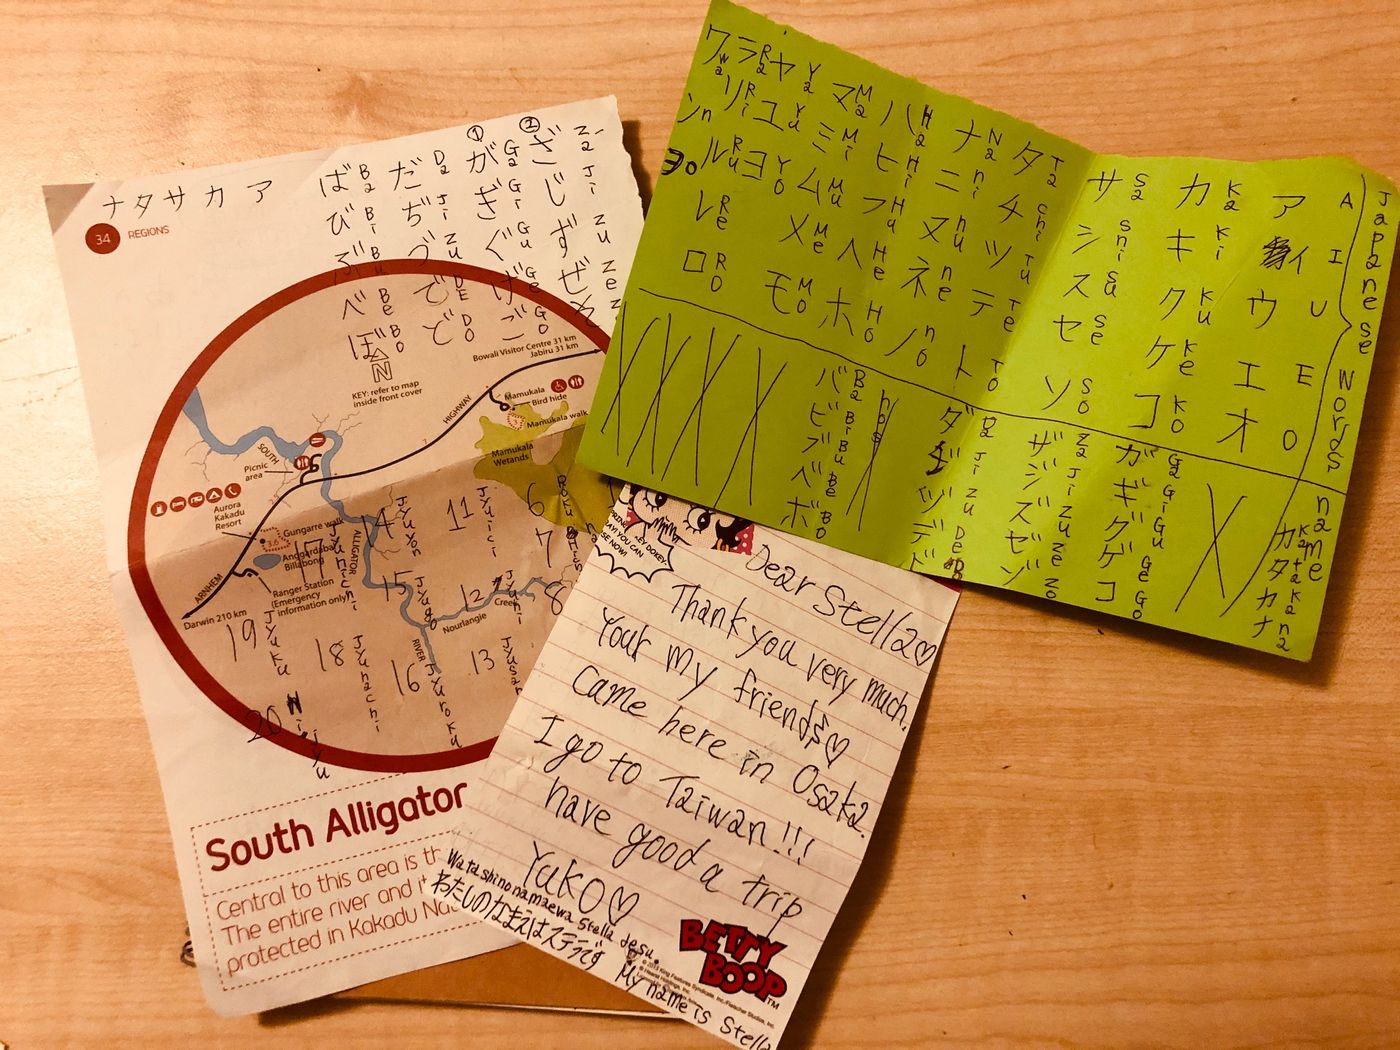 Japanese words
name
A I U E O
ア イ ウ エ オ
Ka Ki Ku Ke Ko
カ キ ク ケ コ
Sa shi su se so
サ シ ス セ ソ
Ta chi Tu Te To
タ チ ツ テ ト
Na ni nu ne no
ナ ニ ヌ ネ ノ
Ha Hi Hu He Ho
ハ ヒ フ ヘ ホ
Ma Mi Mu Me Mo
マ ミ ム メ モ
Ya Yu Yo
ヤ ユ ヨ
Ra Ri Ru Re Ro
ラ リ ル レ ロ
Wa n
ワ ン ヲ。
Katakana
カタカナ
Ga Gi Gu Ge Go
ガ ギ グ ゲ ゴ
Za Ji zu ze zo
ザ ジ ズ ゼ ゾ
Da Ji zu De Do
ダ ヂ ヅ デ ド
Ba Bi Bu Be Bo
バ ビ ブ ベ ボ
Za Ji Zu Ze
② ざ じ ず ぜ
Ga Gi Gu Ge Go
① が ぎ ぐ げ ご
Da Ji Zu DE DO
だ ぢ づ で ど
Ba Bi Bu Be BO
ば び ぶ べ ぼ
ナ タ サ カ ア
34 REGIONS
Bowali Visitor Centre 31 km
Jabiru 31 km
N
KEY: refer to map
inside front cover
Mamukala
Bird hide
Mamukala walk
Mamukala
Wetlands
HIGHWAY
SOUTH
Picnic
area
Aurora
Kakadu
Resort
Gungarre walk
3.6
Anggardabal
Billabong
ALLIGATOR
ARNHEM
Ranger Station
(Emergency
information only)
Darwin 210 km
Nourlangie
Creek
RIVER
6 Roku
7
8
11 Jyuici
12
13 Jyusan
Jyuyon
15 Jyugo
16 Jyuroku
17
18 Jyuhachi
19 Jyuku
20 Ni Jyu
South Alligator
Central to this area is
The entire river and
protected in Kakadu
Dear Stella♡
Thank you very much.
Your my friends♡
Came here in Osaka.
I go to Taiwan!!!
have good a trip
Yuko♡
Watashi no namaewa Stella desu.
わたしのなまえはステラです
My name is Stella
BETTY
BOOP™